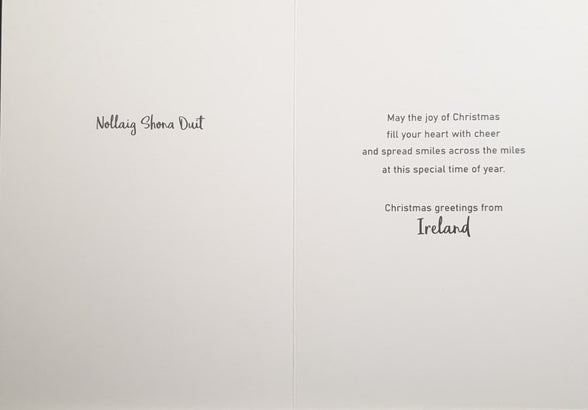 Nollaig Shona Duit
May the joy of Christmas
fill your heart with cheer
and spread smiles across the miles
at this special time of year.
Christmas greetings from
Ireland